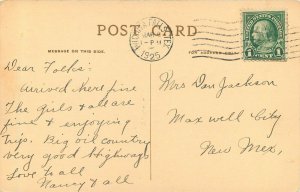 POST CARD
MESSAGE ON THIS SIDE.
1925
1 - P M
Dear Folks:
Arrived here fine
The girls & all are
fine & enjoying
trip. Big oil country
very good Highways
Love to all
Nancy & all
UNITED STATES POSTAGE
1 CENT 1
Mrs Dan Jackson
Maxwell City
New Mex,